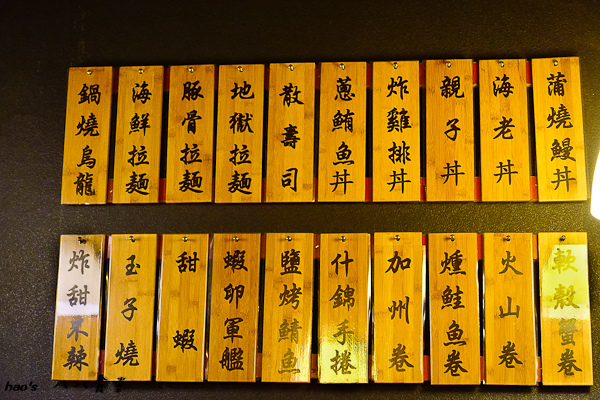 蒲燒鰻丼
海老丼
親子丼
炸雞排丼
蔥鮪魚丼
散壽司
地獄拉麵
豚骨拉麵
海鮮拉麵
鍋燒烏龍
軟殼蟹卷
火山卷
燻鮭魚卷
加州卷
什錦手捲
鹽烤鯖魚
蝦卵軍艦
甜蝦
玉子燒
炸甜不辣
hao's